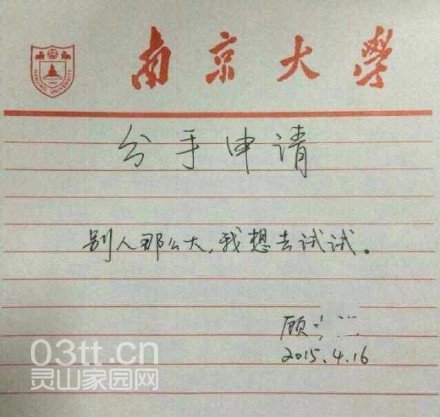 南京大学
分手申请
别人那么大,我想去试试。
顾
2015.4.16
03tt.cn
灵山家园网